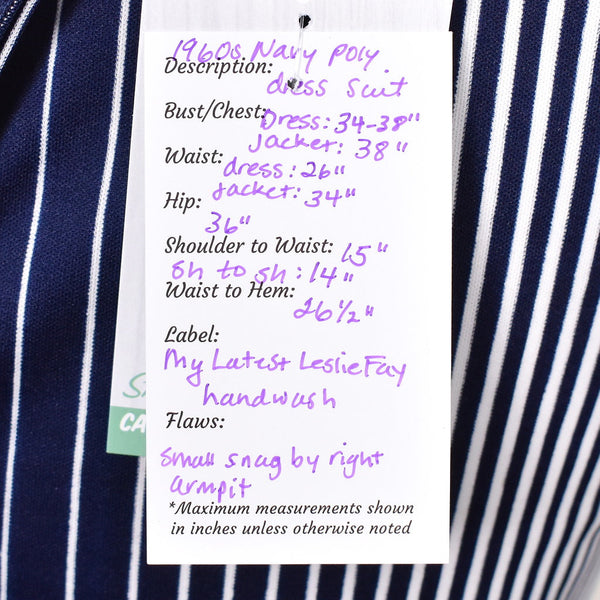 1960s Navy poly
Description:
dress suit
Bust/Chest: Dress: 34-38"
Jacket: 38"
Waist: dress: 26"
Jacket: 34"
Hip: 36"
Shoulder to Waist: 15"
Sh to sh: 14"
Waist to Hem: 26 1/2"
Label:
My Latest Leslie Fay
handwash
Flaws:
Small snag by right
armpit
*Maximum measurements shown
in inches unless otherwise noted
CA